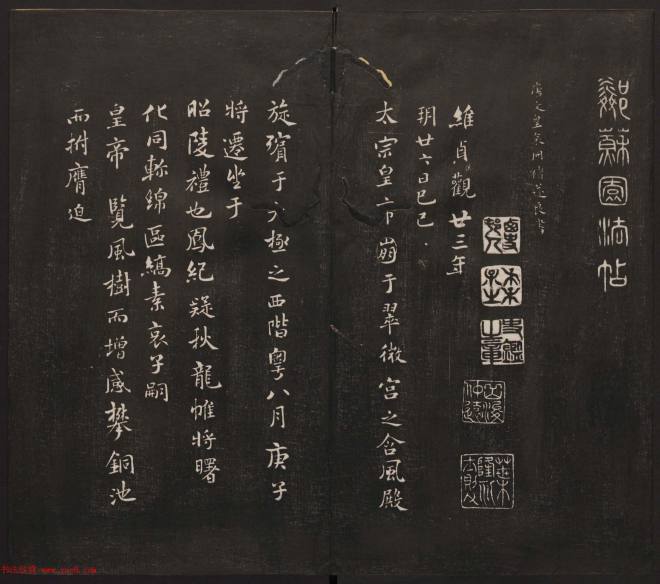 鄰蘇園法帖
唐文皇哀冊褚遂良書
維貞觀廿三年
五月廿六日己巳
太宗皇帝崩于翠微宮之含風殿
旋殯于太極之西階粵八月庚子
將遷坐于
昭陵禮也鳳紀疑秋龍帷將曙
化同軫綿區縞素哀子嗣
皇帝 覽風樹而增感攀銅池
而拊膺迫
书法欣赏 www.yac8.com